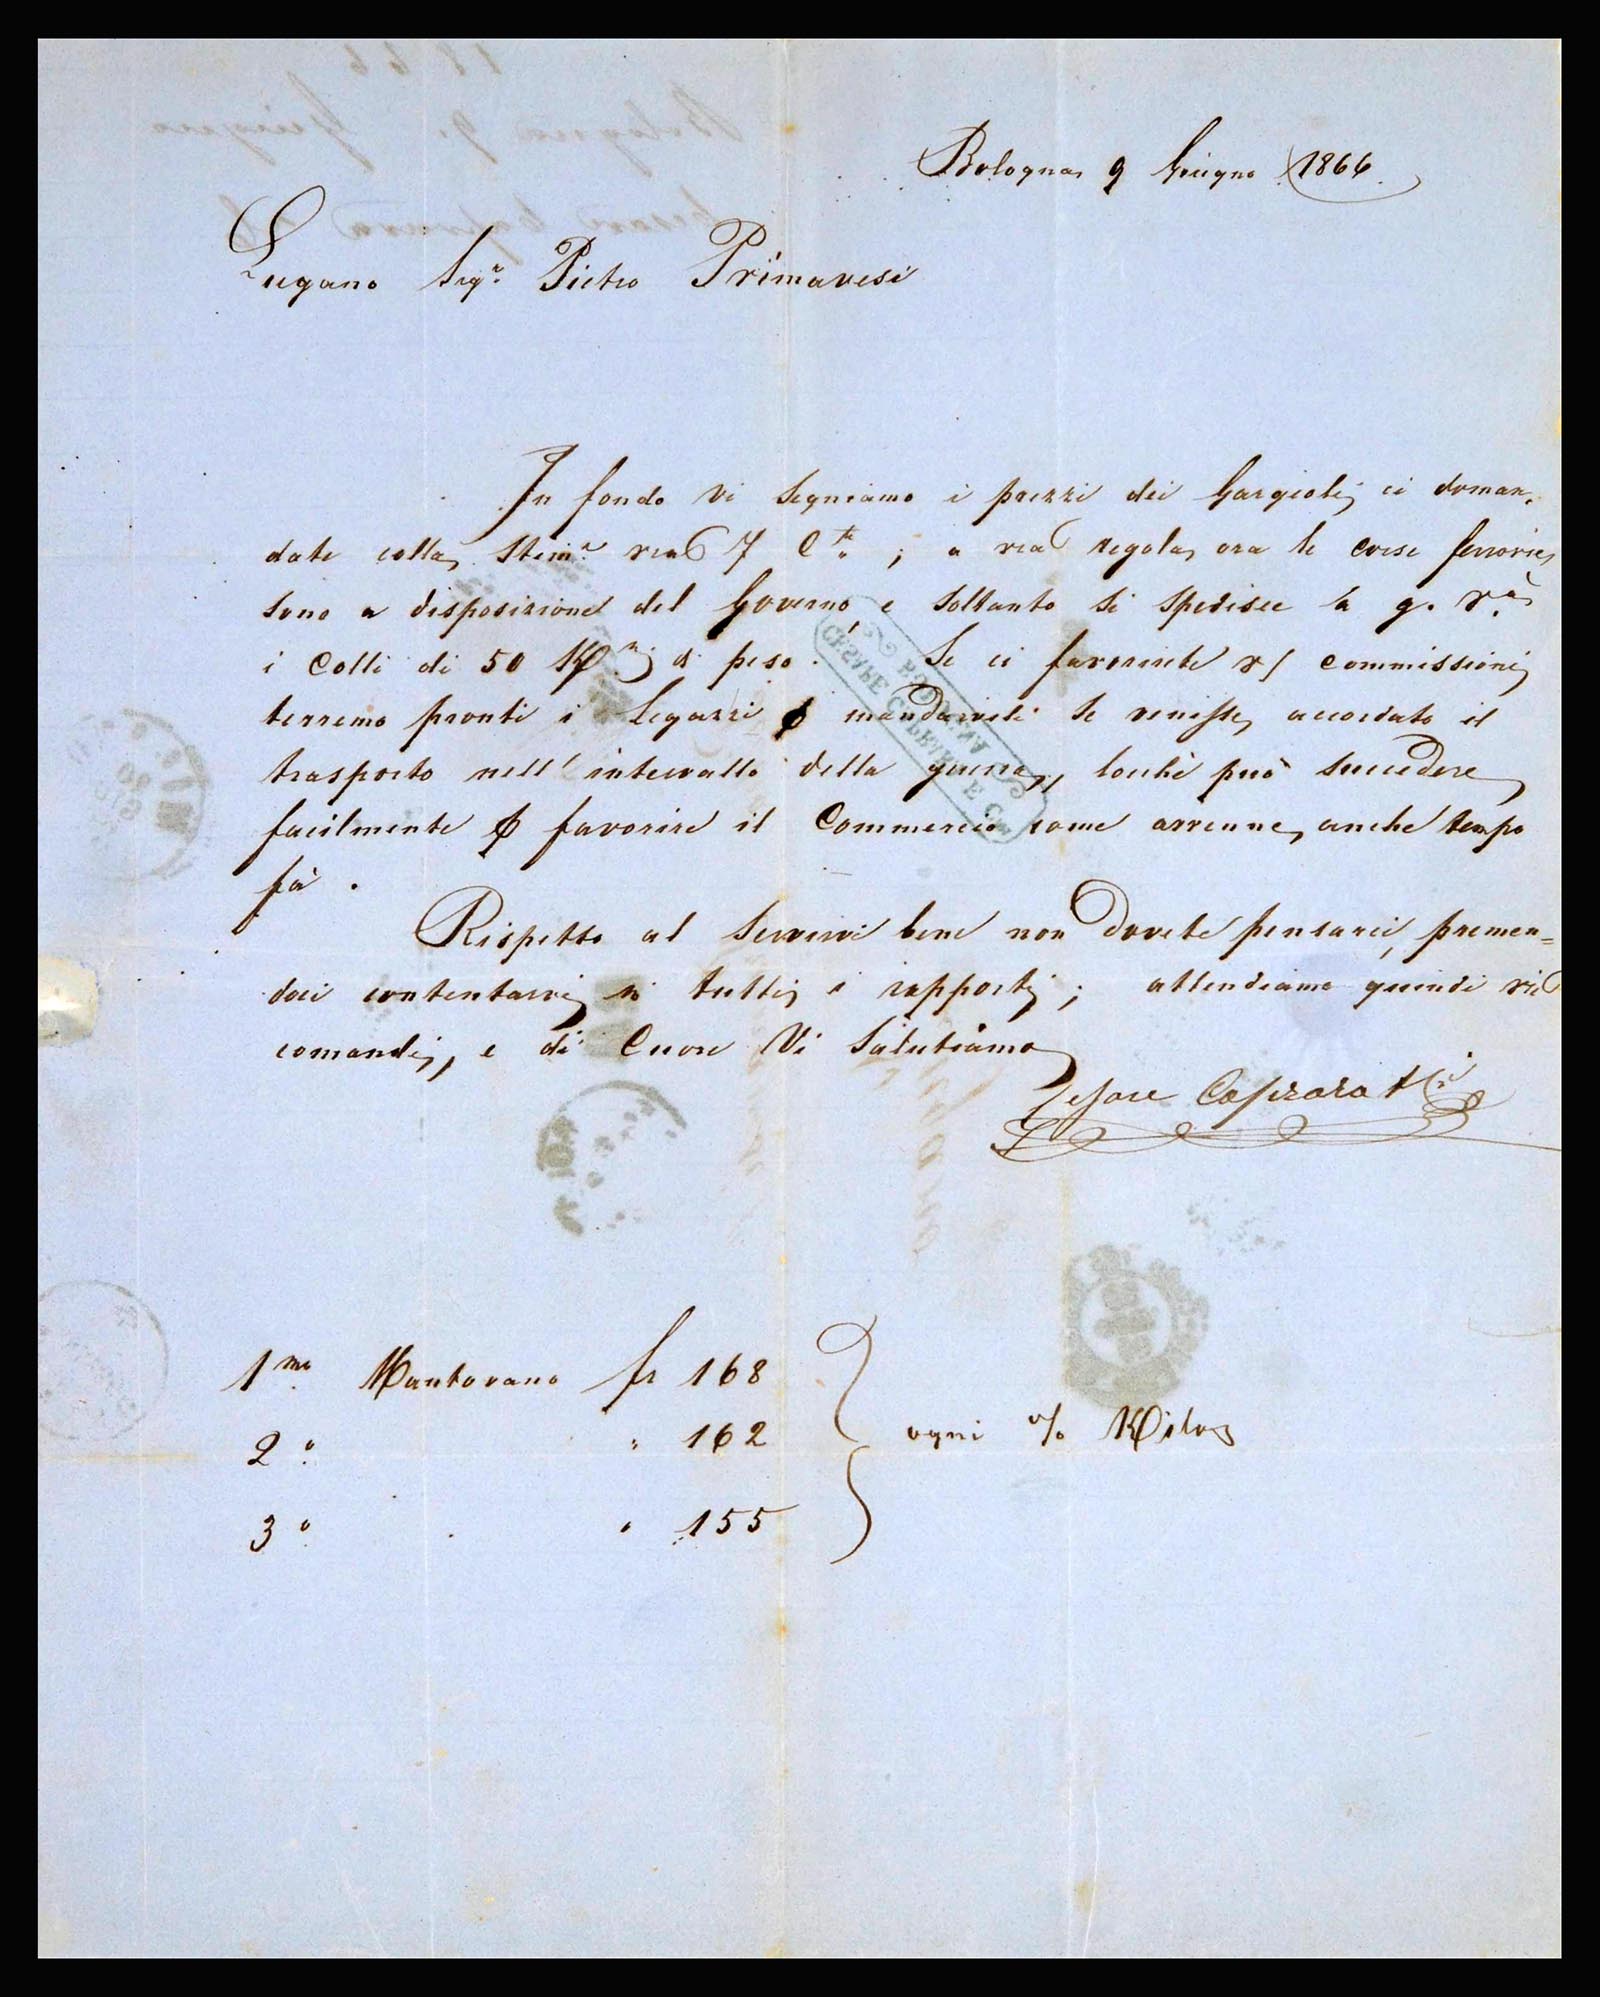 Bologna 9 Giugno 1866.
Lugano Sigr. Pietro Primavesi
In fondo Vi segniamo i prezzi dei Gargioli ci doman=
date colla Stima. vra 7 Cte. ; a vra regola ora le corse ferrovie
sono a disposizione del Governo, e soltanto si spedisce a g. Và
i Colli di 50 di peso. Se ci favorirete commissioni
terremo pronti i Legazzi mandarveli se venisse accordato il
trasporto nell' intervallo della guerra, locchè può succedere
facilmente favorire il Commercio come avvenne anche tempo
fà.
Rispetto al servirvi bene non dovete pensarci, premen=
doci contentarvi in tutti i rapporti; attendiamo quindi vri
comandi, e di Cuore Vi Salutiamo
Cesare Caprara
1mo Mantovano fr 168
2o " 162
ogni % Kilos
3o " 155
BOLOGNA
CESARE CAPRARA E C.